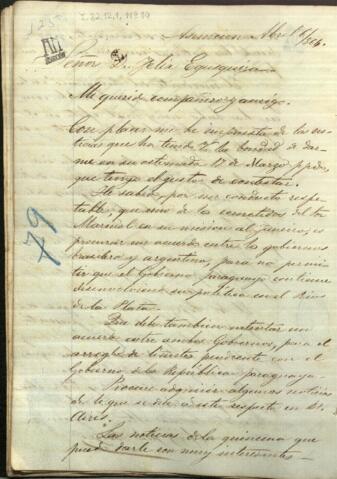 I-22,12,1, nº 79
Asuncion Abril 6/864.
Señor Dn. Felix Egusquiza.
Mi querido compañero y amigo.
Con placer me he impuesto de las no-
ticias que ha tenido V. la bondad de dar-
me en su estimada 17 de Marzo ppdo,
que tengo el gusto de contestar.
He sabido por un conducto respe-
table, que uno de los cometidos del Sor
Marmol en su mision al Janeiro, es
procurar un acuerdo entre los gobiernos
brasilero y argentino, para no permi-
tir que el Gobierno paraguayo continue
desenvolviendo su politica en el Rio
de la Plata.
Que debe tambien intentar un
acuerdo entre ambos Gobiernos, para el
arreglo de limites pendiente con el
Gobierno de la Republica paraguaya.
Procure adquirir algunas noticias
de lo que se dice a este respecto en Bs.
Aires.
Las noticias de la quincena que
puedo darle son muy interesantes
79